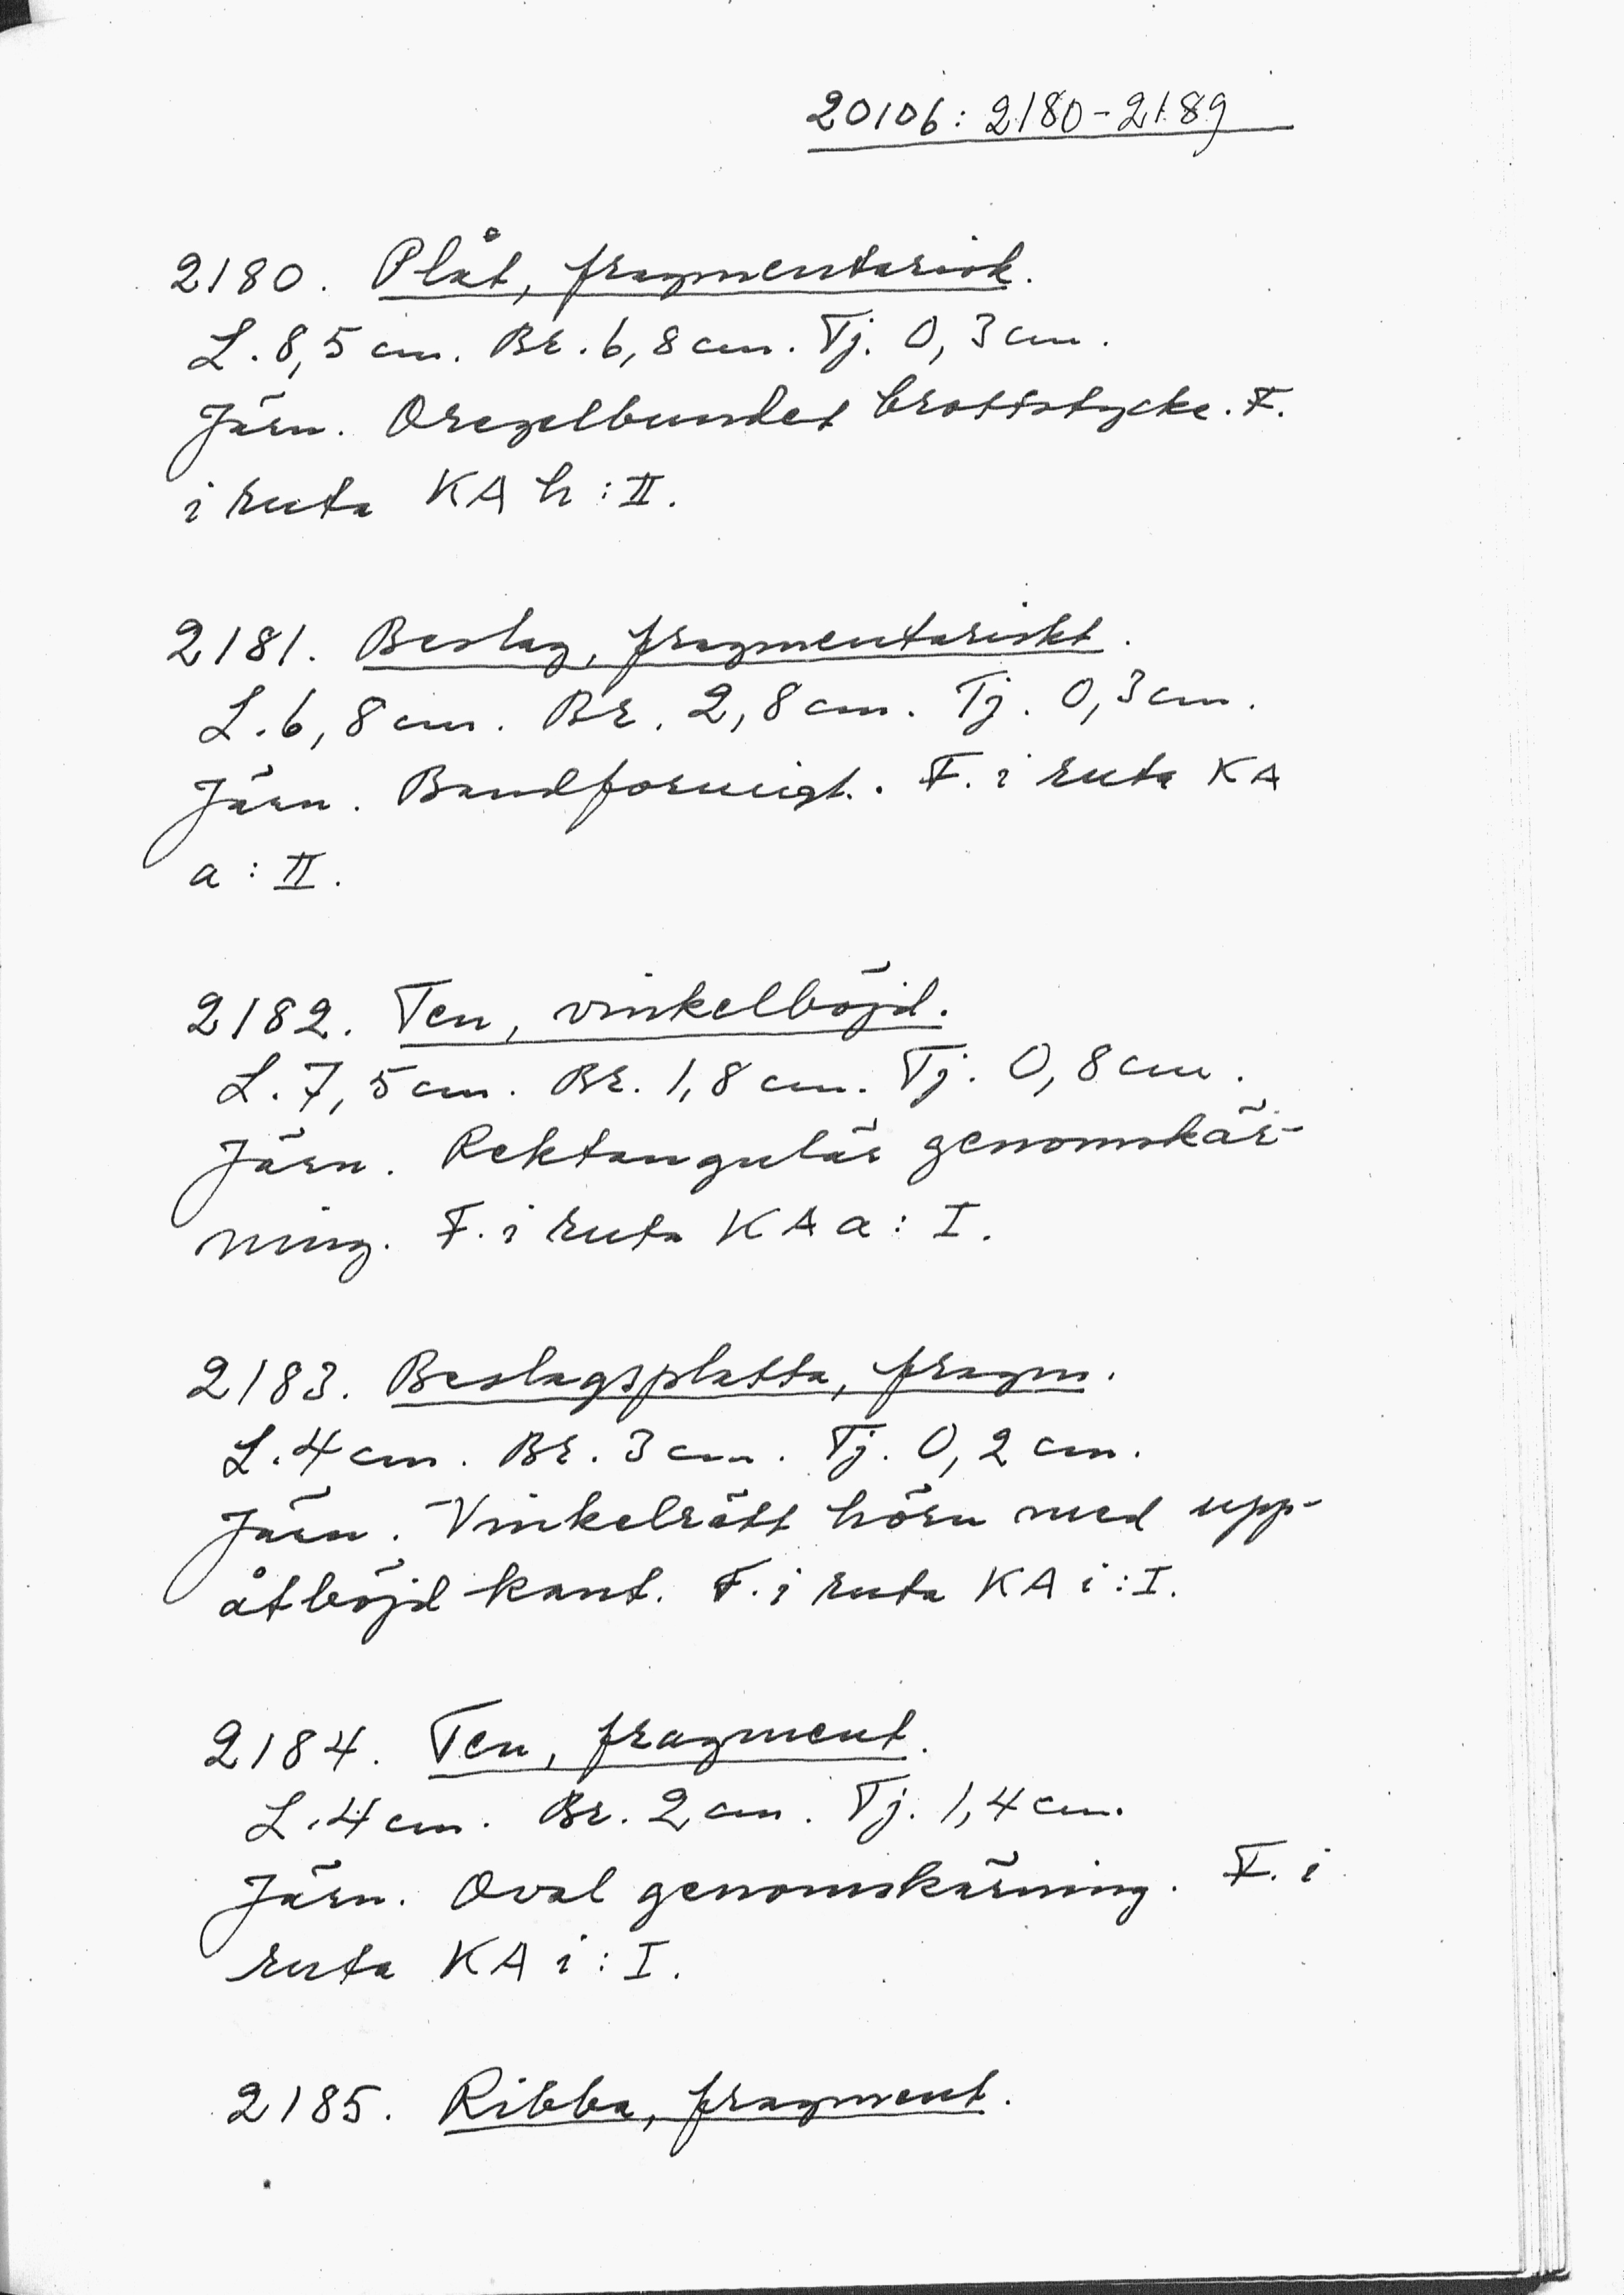 20106: 2180-2189
2180. Plåt, fragmentarisk.
L. 8,5 cm. Br. 6,8 cm. Tj. 0,3 cm.
Järn. Oregelbundet brottstycke. F.
i ruta KA h: II.
2181. Beslag, fragmentariskt.
L. 6,8 cm. Br. 2,8 cm. Tj. 0,3 cm.
Järn. Bandformigt. F. i ruta KA
a: II.
2182. Ten, vinkelböjd.
L. 7,5 cm. Br. 1,8 cm. Tj. 0,8 cm.
Järn. Rektangulär genomskär-
ning. F. i ruta KA a: I.
2183. Beslagsplatta, fragm.
L. 4 cm. Br. 3 cm. Tj. 0,2 cm.
Järn. Vinkelrätt hörn med upp-
åtböjd kant. F. i ruta KA i: I.
2184. Ten, fragment.
L. 4 cm. Br. 2 cm. Tj. 1,4 cm.
Järn. Oval genomskärning. F. i
ruta KA i: I.
2185. Ribba, fragment.